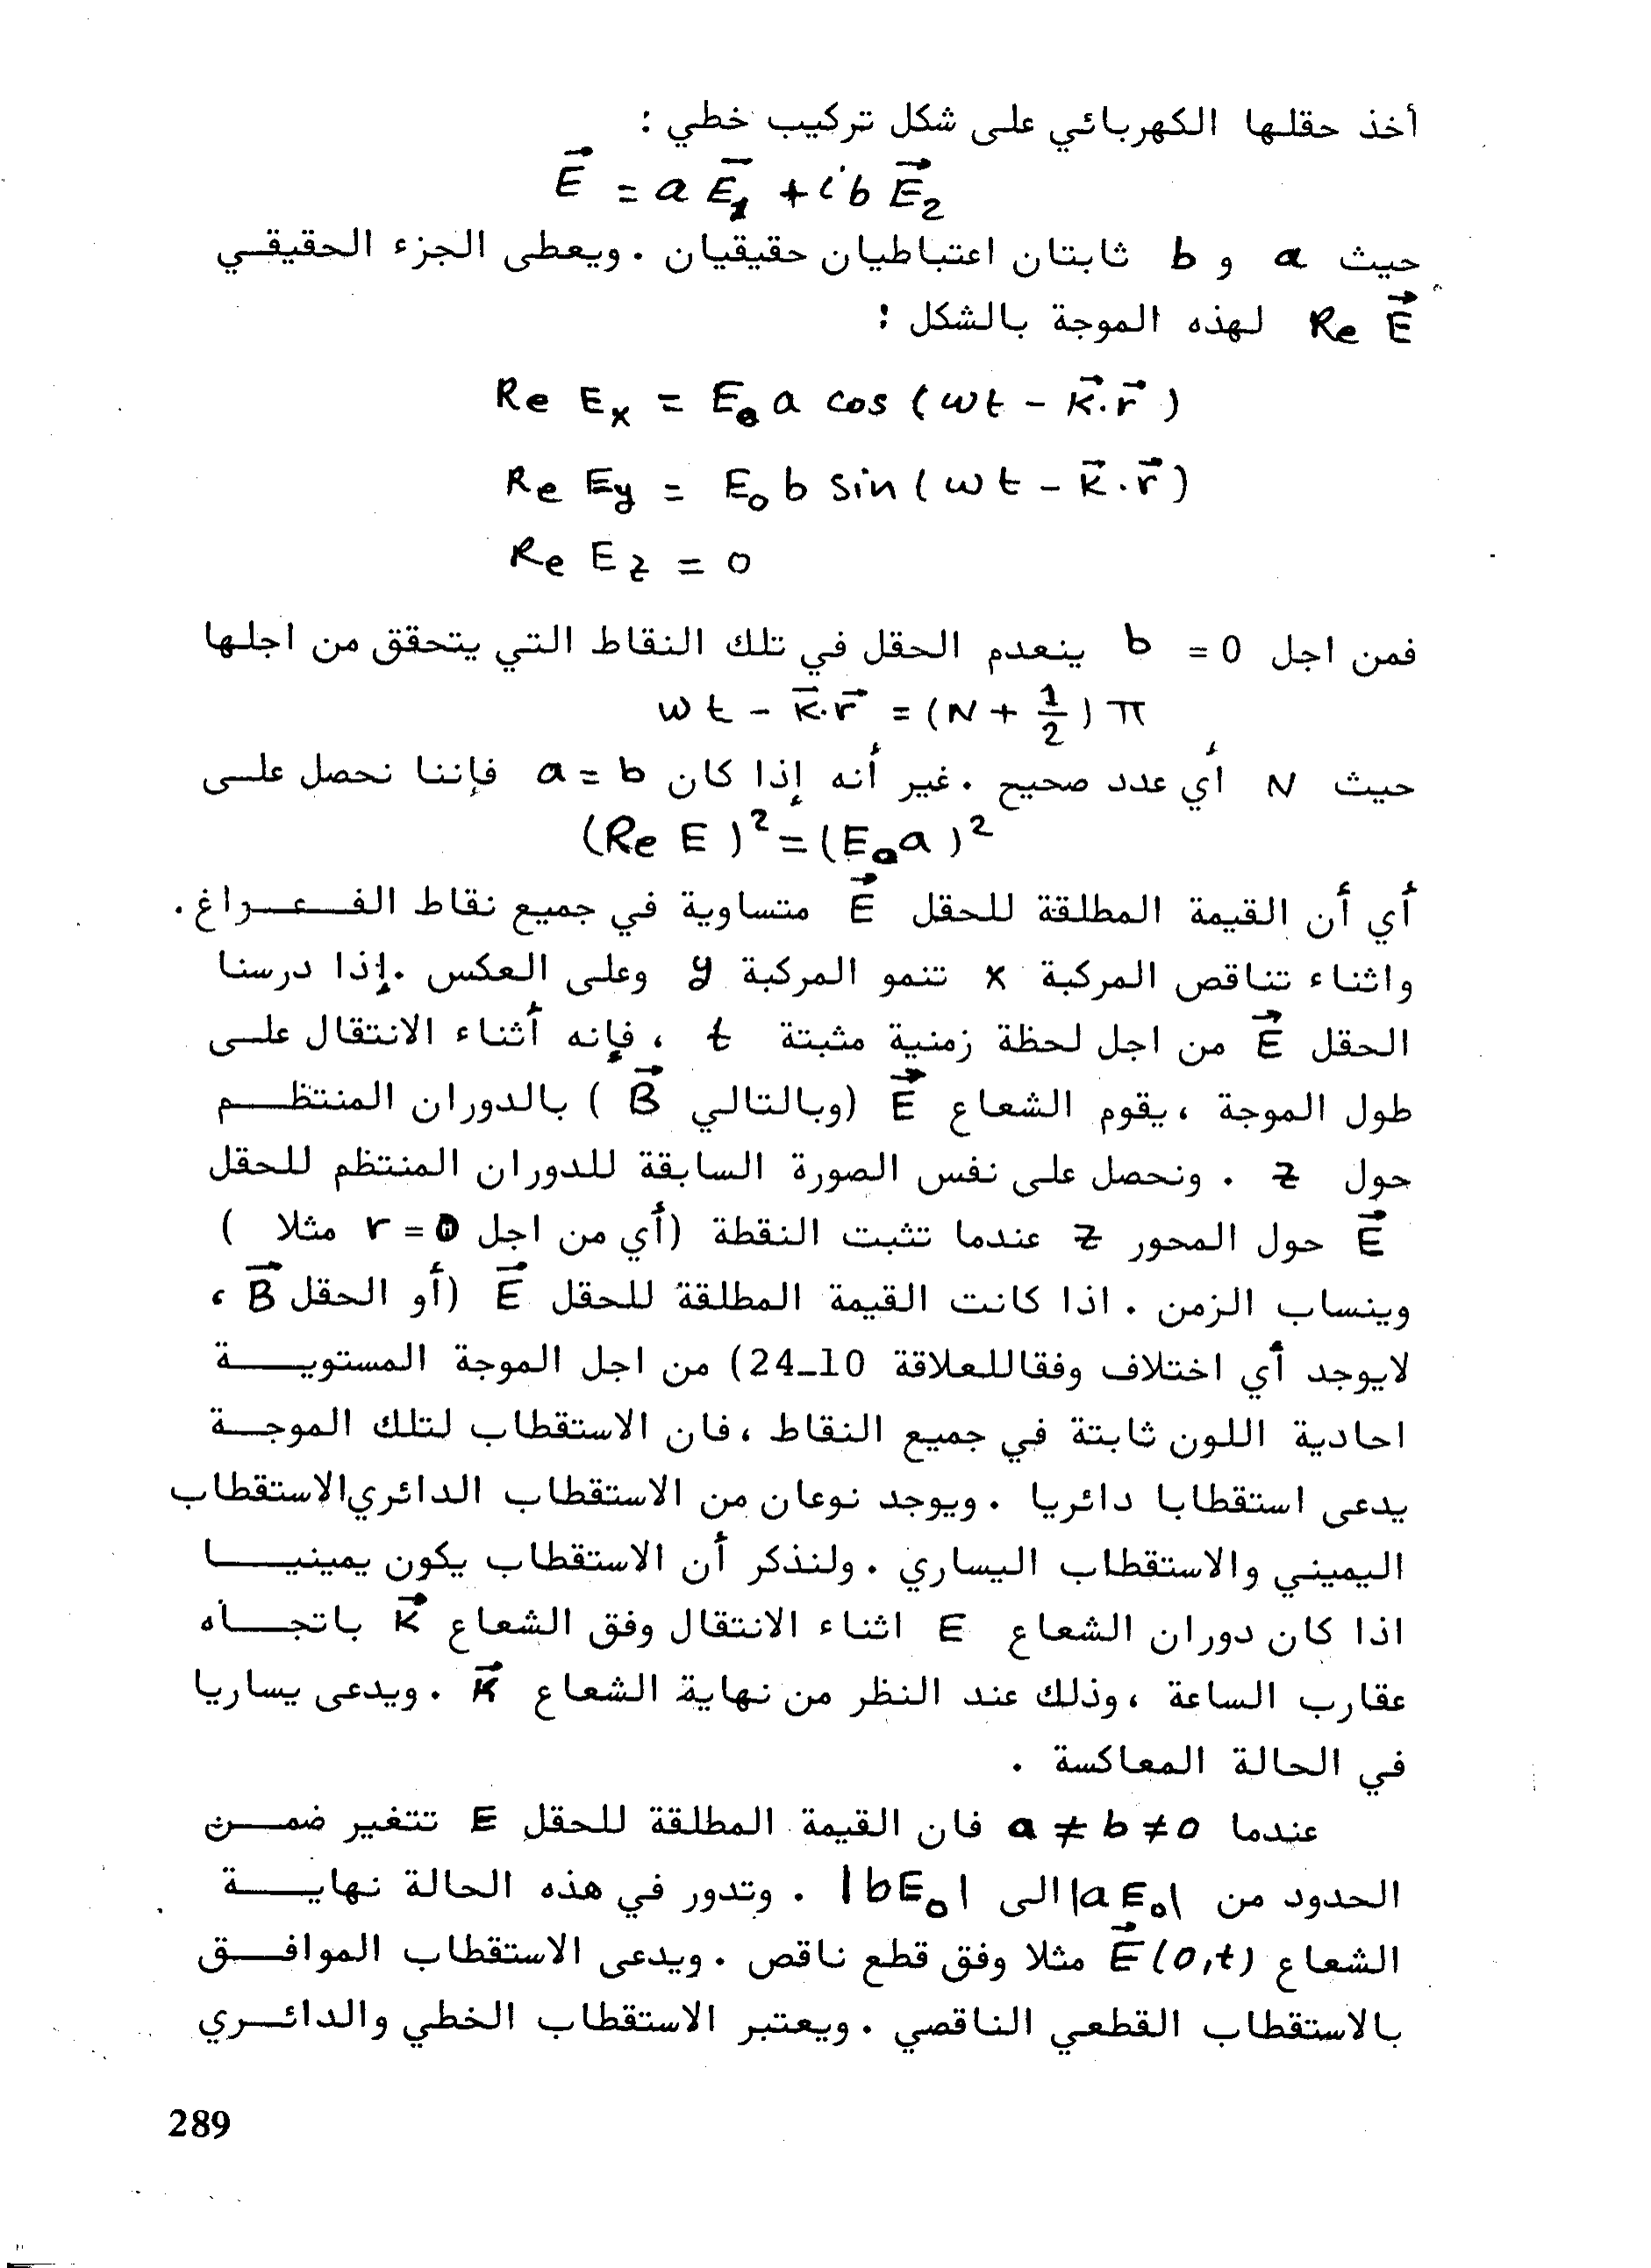 أخذ حقلها الكهربائي على شكل تركيب خطي :
E⃗ = a E⃗₁ + i b E⃗₂
حيث a و b ثابتان اعتباطيان حقيقيان . ويعطى الجزء الحقيقي
Re E⃗ لهذه الموجة بالشكل :
Re Eₓ = E₀ a cos ( ωt - K⃗.r⃗ )
Re E_y = E₀ b sin ( ωt - K⃗.r⃗ )
Re E_z = 0
فمن اجل b = 0 ينعدم الحقل في تلك النقاط التي يتحقق من اجلها
ωt - K⃗.r⃗ = ( N + 1/2 ) π
حيث N أي عدد صحيح . غير أنه إذا كان a = b فإننا نحصل على
(Re E )² = (E₀a )²
أي أن القيمة المطلقة للحقل E⃗ متساوية في جميع نقاط الفـــراغ .
واثناء تناقص المركبة x تنمو المركبة y وعلى العكس .إذا درسنا
الحقل E⃗ من اجل لحظة زمنية مثبتة t ، فإنه أثناء الانتقال على
طول الموجة ، يقوم الشعاع E⃗ (وبالتالي B⃗ ) بالدوران المنتظم
حول z . ونحصل على نفس الصورة السابقة للدوران المنتظم للحقل
E⃗ حول المحور z عندما تثبت النقطة (أي من اجل r = 0 مثلا )
وينساب الزمن . اذا كانت القيمة المطلقة للحقل E⃗ (أو الحقل B⃗ ،
لايوجد أي اختلاف وفقاللعلاقة 10ـ24) من اجل الموجة المستوية
احادية اللون ثابتة في جميع النقاط ، فان الاستقطاب لتلك الموجة
يدعى استقطابا دائريا . ويوجد نوعان من الاستقطاب الدائري الاستقطاب
اليميني والاستقطاب اليساري . ولنذكر أن الاستقطاب يكون يمينيا
اذا كان دوران الشعاع E اثناء الانتقال وفق الشعاع K⃗ باتجاه
عقارب الساعة ، وذلك عند النظر من نهاية الشعاع K⃗ . ويدعى يساريا
في الحالة المعاكسة .
عندما a ≠ b ≠ 0 فان القيمة المطلقة للحقل E تتغير ضمن
الحدود من |aE₀| الى |bE₀| . وتدور في هذه الحالة نهاية
الشعاع E⃗(0,t) مثلا وفق قطع ناقص . ويدعى الاستقطاب الموافق
بالاستقطاب القطعي الناقصي . ويعتبر الاستقطاب الخطي والدائري
289